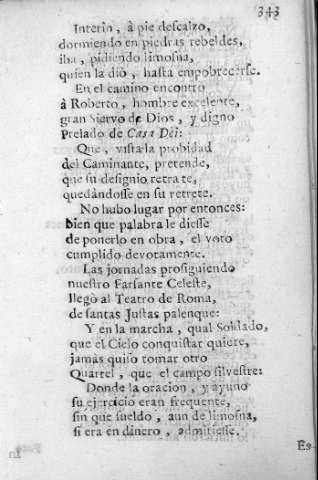 343
Interin, à pie descalzo,
dormiendo en piedras rebeldes,
iba, pidiendo limosna,
quien la diò, hasta empobrecerse.
En el camino encontrò
à Roberto, hombre excelente,
gran Siervo de Dios, y digno
Prelado de Casa Dei:
Que, vista la probidad
del Caminante, pretende,
que su designio retrate,
quedandosse en su retrete.
No hubo lugar por entonces:
bien que palabra le diesse
de ponerlo en obra, el voto
cumplido devotamente.
Las jornadas prosiguiendo
nuestro Farsante Celeste,
llegò al Teatro de Roma,
de santas Justas palenque:
Y en la marcha, qual Soldado,
que el Cielo conquistar quiere,
jamàs quiso tomar otro
Quartel, que el campo silvestre:
Donde la oracion, y ayuno
su exercicio eran frequente,
sin que sueldo, aun de limosna,
si era en dinero, admitiesse.
Es-